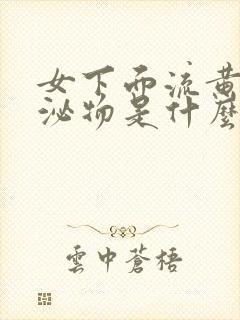 女下面流黄
泌物是什麼
雲中蒼梧